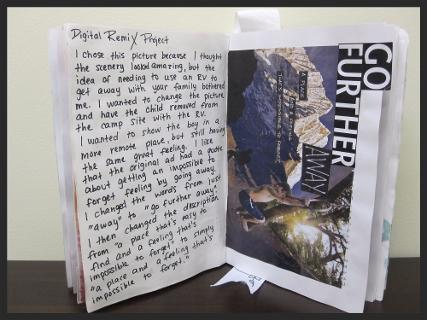 Digital Remix Project
I chose this picture because I thought
the scenery looked amazing, but the
idea of needing to use an RV to
get away with your family bothered
me. I wanted to change the picture
and have the child removed from
the camp site with the RV.
I wanted to show the boy in a
more remote place, but still having
the same great feeling. I like
that the original ad had a quote
about getting an impossible to
forget feeling by going away.
I changed the words from just
"away" to "go further away".
I then changed the description
from "a place that's easy to
find and a feeling that's
impossible to forget" to simply
"a place and a feeling that's
impossible to forget."
GO
FURTHER
AWAY